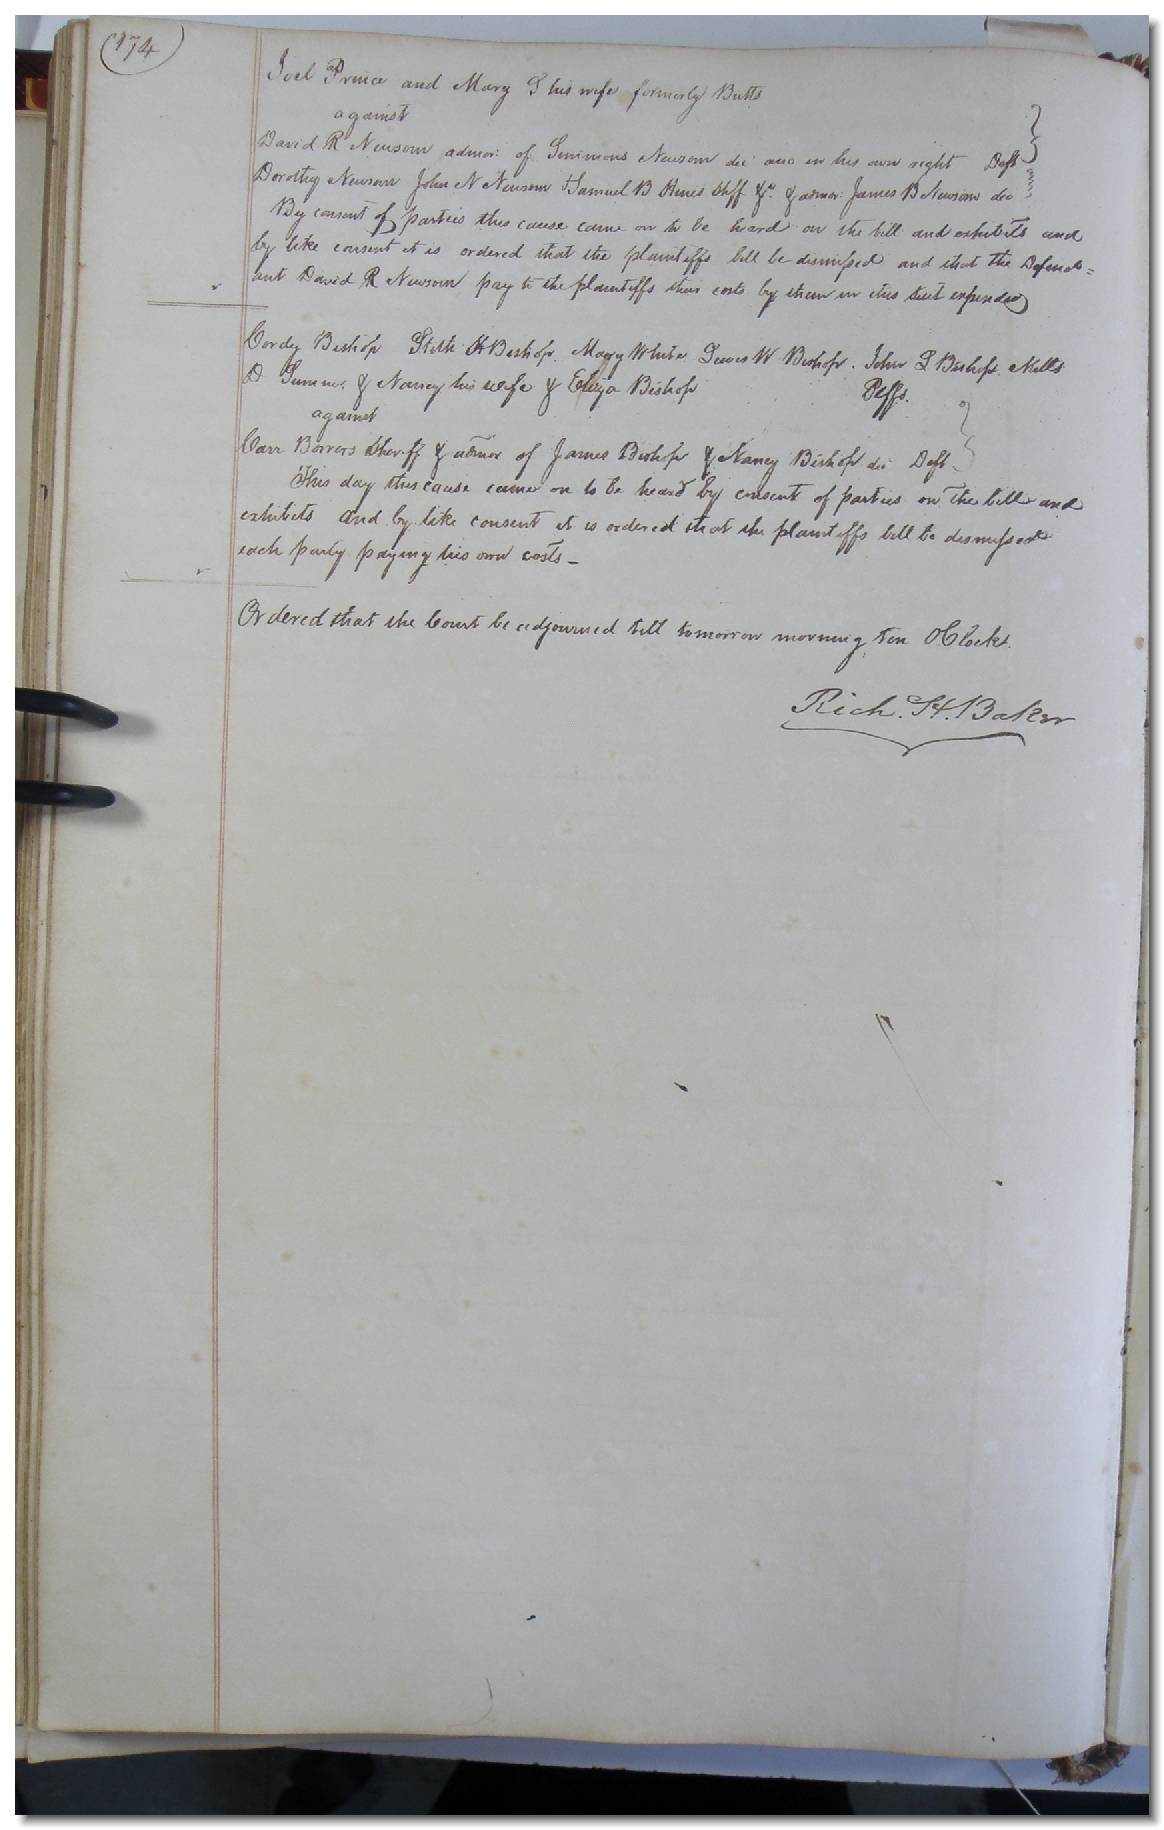 174
Joel Prince and Mary S his wife formerly Butts
against
David R Newsom admor. of Simmons Newsom dec and in his own right Defts
Dorothy Newsom John N Newsom Samuel B Hines Shff &c. & admor James B Newsom dec
By consent of parties this cause came on to be heard on the bill and exhibits and
by like consent it is ordered that the plaintiffs bill be dismissed and that the Defend=
ant David R Newsom pay to the plaintiffs their costs by them in this suit expended
Cordy Bishop Stith H Bishop. Mary White Lewis W Bishop. John S Bishop. Mills
D & Nancy his wife & Eliza Bishop Plffs.
against
Carr Bowers Sheriff & admor of James Bishop & Nancy Bishop dec Deft
This day this cause came on to be heard by consent of parties on the bill and
exhibits and by like consent it is ordered that the plaintiffs bill be dismissed
each party paying his own costs -
Ordered that the Court be adjourned till tomorrow morning ten OClock.
Rich. H. Baker